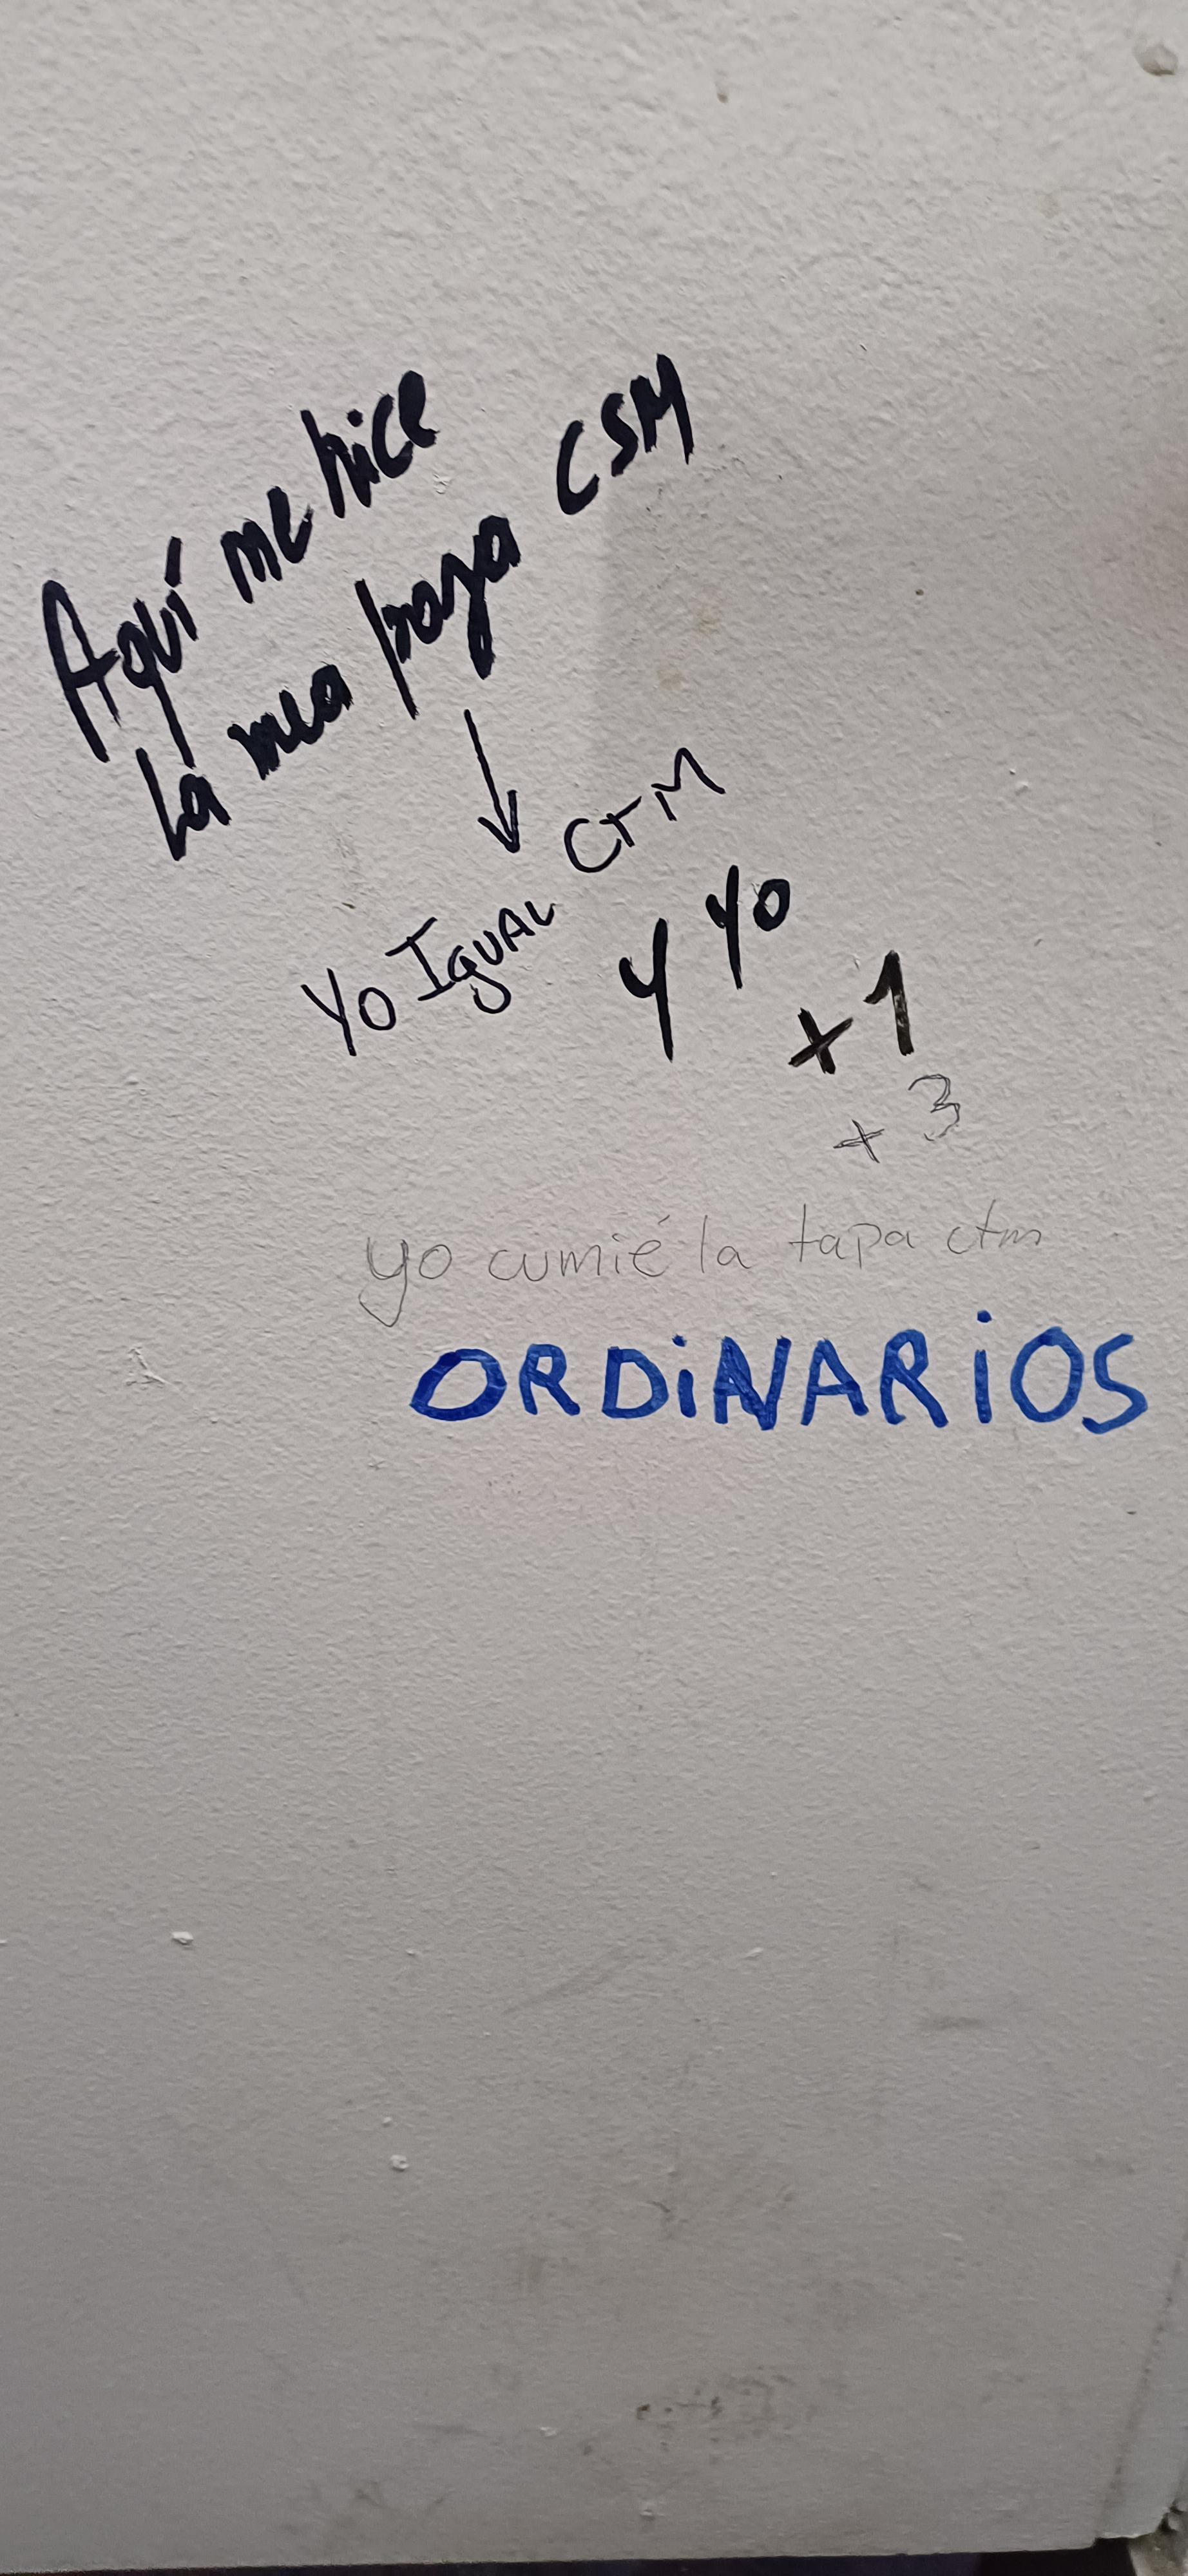 Aquí me hice
La mea paja CSM
Yo Igual CTM
y yo
+1
+3
yo cumié la tapa ctm
ORDiNARiOS